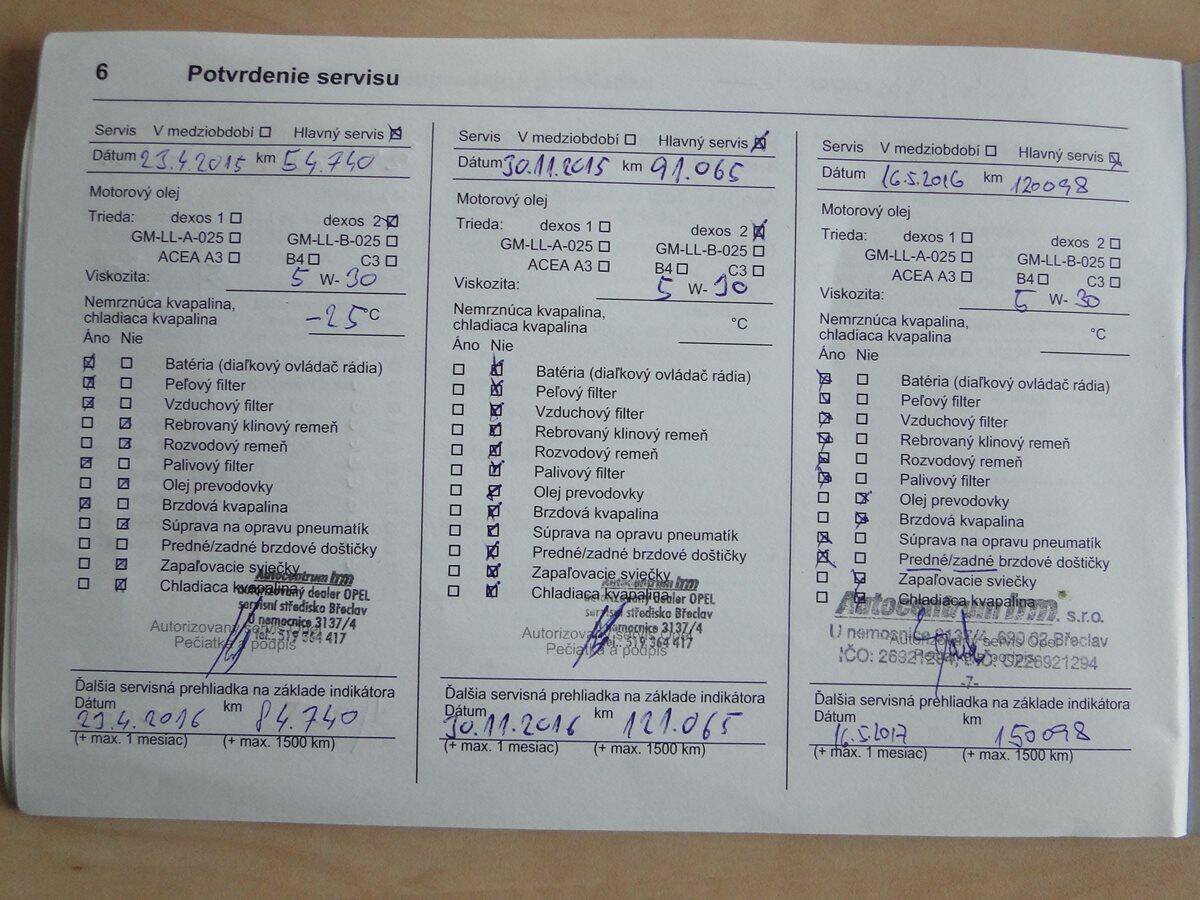 6 Potvrdenie servisu
Servis V medziobdobí ☐ Hlavný servis ☒
Dátum 23.4.2015 km 54.740
Motorový olej
Trieda: dexos 1 ☐ dexos 2 ☒
GM-LL-A-025 ☐ GM-LL-B-025 ☐
ACEA A3 ☐ B4 ☐ C3 ☐
Viskozita: 5 W- 30
Nemrznúca kvapalina,
chladiaca kvapalina -25 °C
Áno Nie
☒ ☐ Batéria (diaľkový ovládač rádia)
☒ ☐ Peľový filter
☒ ☐ Vzduchový filter
☐ ☒ Rebrovaný klinový remeň
☐ ☒ Rozvodový remeň
☒ ☐ Palivový filter
☐ ☒ Olej prevodovky
☒ ☐ Brzdová kvapalina
☐ ☒ Súprava na opravu pneumatík
☐ ☐ Predné/zadné brzdové doštičky
☐ ☒ Zapaľovacie sviečky
☐ ☒ Chladiaca kvapalina
Autocentrum brm
autorizovaný dealer OPEL
servisní středisko Břeclav
U nemocnice 3137/4
tel.: 519 364 417
Autorizovaný servis Opel
Pečiatka a podpis
Ďalšia servisná prehliadka na základe indikátora
Dátum 23.4.2016 km 84.740
(+ max. 1 mesiac) (+ max. 1500 km)
Servis V medziobdobí ☐ Hlavný servis ☒
Dátum 30.11.2015 km 91.065
Motorový olej
Trieda: dexos 1 ☐ dexos 2 ☒
GM-LL-A-025 ☐ GM-LL-B-025 ☐
ACEA A3 ☐ B4 ☐ C3 ☐
Viskozita: 5 W- 30
Nemrznúca kvapalina,
chladiaca kvapalina °C
Áno Nie
☐ ☒ Batéria (diaľkový ovládač rádia)
☐ ☒ Peľový filter
☐ ☒ Vzduchový filter
☐ ☒ Rebrovaný klinový remeň
☐ ☒ Rozvodový remeň
☐ ☒ Palivový filter
☐ ☒ Olej prevodovky
☐ ☒ Brzdová kvapalina
☐ ☒ Súprava na opravu pneumatík
☐ ☒ Predné/zadné brzdové doštičky
☐ ☒ Zapaľovacie sviečky
☐ ☒ Chladiaca kvapalina
Autocentrum brm
autorizovaný dealer OPEL
servisní středisko Břeclav
U nemocnice 3137/4
tel.: 519 364 417
Autorizovaný servis Opel
Pečiatka a podpis
Ďalšia servisná prehliadka na základe indikátora
Dátum 30.11.2016 km 121.065
(+ max. 1 mesiac) (+ max. 1500 km)
Servis V medziobdobí ☐ Hlavný servis ☒
Dátum 16.5.2016 km 120098
Motorový olej
Trieda: dexos 1 ☐ dexos 2 ☐
GM-LL-A-025 ☐ GM-LL-B-025 ☐
ACEA A3 ☐ B4 ☐ C3 ☐
Viskozita: 5 W- 30
Nemrznúca kvapalina,
chladiaca kvapalina °C
Áno Nie
☒ ☐ Batéria (diaľkový ovládač rádia)
☒ ☐ Peľový filter
☒ ☐ Vzduchový filter
☒ ☐ Rebrovaný klinový remeň
☒ ☐ Rozvodový remeň
☒ ☐ Palivový filter
☐ ☒ Olej prevodovky
☐ ☒ Brzdová kvapalina
☒ ☐ Súprava na opravu pneumatík
☒ ☐ Predné/zadné brzdové doštičky
☐ ☒ Zapaľovacie sviečky
☐ ☒ Chladiaca kvapalina
Autocentrum brm. s.r.o.
U nemocnice 3137/4, 690 02 Břeclav
IČO: 26921294, DIČ: CZ26921294
-7-
Autorizovaný servis Opel
Pečiatka a podpis
Ďalšia servisná prehliadka na základe indikátora
Dátum 16.5.2017 km 150098
(+ max. 1 mesiac) (+ max. 1500 km)